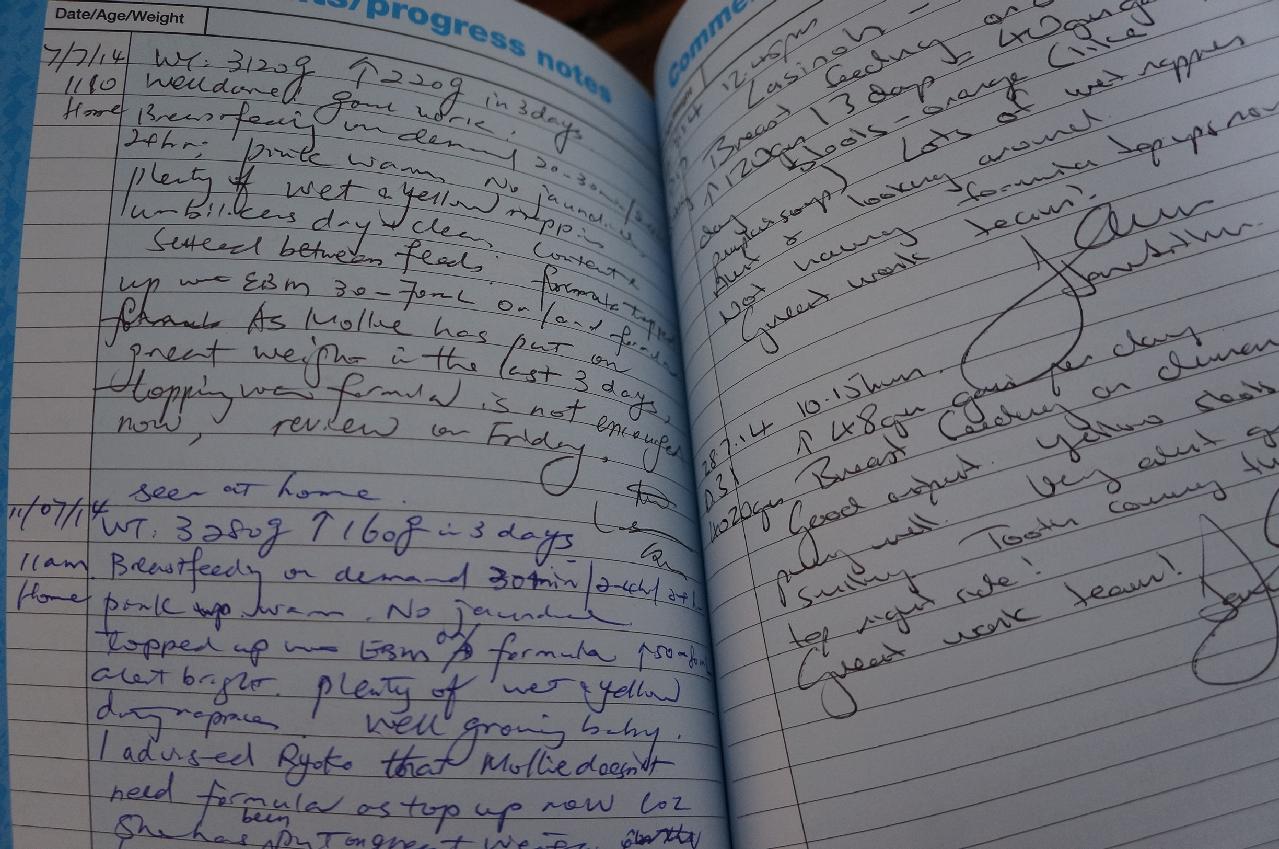 ts/progress notes
Date/Age/Weight
7/7/14 WT. 3120g ↑220g in 3 days
1110 Welldone! good work.
Home Breastfeeding on demand 20-30min/
2-4hr; pink warm. No jaundice
plenty of wet & yellow nappies
umbilicus dry & clean. content &
Settled between feeds. formula topped
up w EBM 30-70mL or/and formula
As Mollie has put on
great weight in the last 3 days,
topping w formula is not encouraged
now, review on Friday.
seen at home.
11/07/14 WT. 3280g ↑160g in 3 days
11am Breastfeeding on demand 30min/
Home pink warm. No jaundice
topped up w EBM or formula
alert bright. plenty of wet & yellow
dirty nappies. Well growing baby.
I advised Ryoko that Mollie doesn't
need formula as top up now coz
She has been put on great
Comme
14 12.
Lasinoh -
Breast feeding on
↑120gm / 3 days = 40gm ga
day stools - orange (like
pumpkin soup) Lots of wet nappies
Alert & looking around.
Not having formula top ups now
Great work team!
28.7.14 10.15
D31 ↑48gm gain per day
4020gm Breast feeding on deman
Good output. Yellow stools
Very alert
smiling. Tooth coming
top right side!
Great work team!